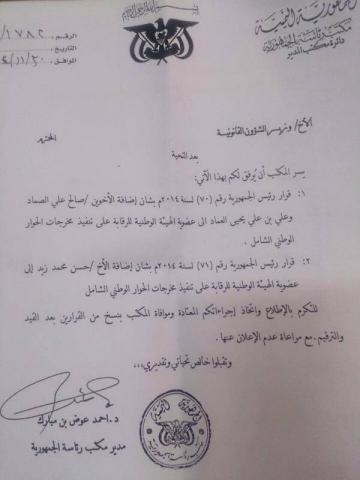 الجمهورية اليمنية
مكتب رئاسة الجمهورية
دائرة مكتب المدير
الرقم: /١٧٨٢
التاريخ:
الموافق: /١١/٣٠
الأخ/ وزير الشؤون القانونية المحترم
بعد التحية
يسر المكتب أن يرفق لكم بهذا الآتي:
١- قرار رئيس الجمهورية رقم (٧٠) لسنة ٢٠١٤م بشان إضافة الأخوين/صالح علي الصماد
وعلي بن علي يحيى العماد الى عضوية الهيئة الوطنية للرقابة على تنفيذ مخرجات الحوار
الوطني الشامل.
٢- قرار رئيس الجمهورية رقم (٧١) لسنة ٢٠١٤م بشان إضافة الأخ /حسن محمد زيد إلى
عضوية الهيئة الوطنية للرقابة على تنفيذ مخرجات الحوار الوطني الشامل
للتكرم بالإطلاع واتخاذ إجراءاتكم المعتادة وموافاة المكتب بنسخ من القرارين بعد القيد
والترقيم .مع مراعاة عدم الإعلان عنها .
وتقبلوا خالص تحياتي وتقديري،،،
د.احمد عوض بن مبارك
مدير مكتب رئاسة الجمهورية